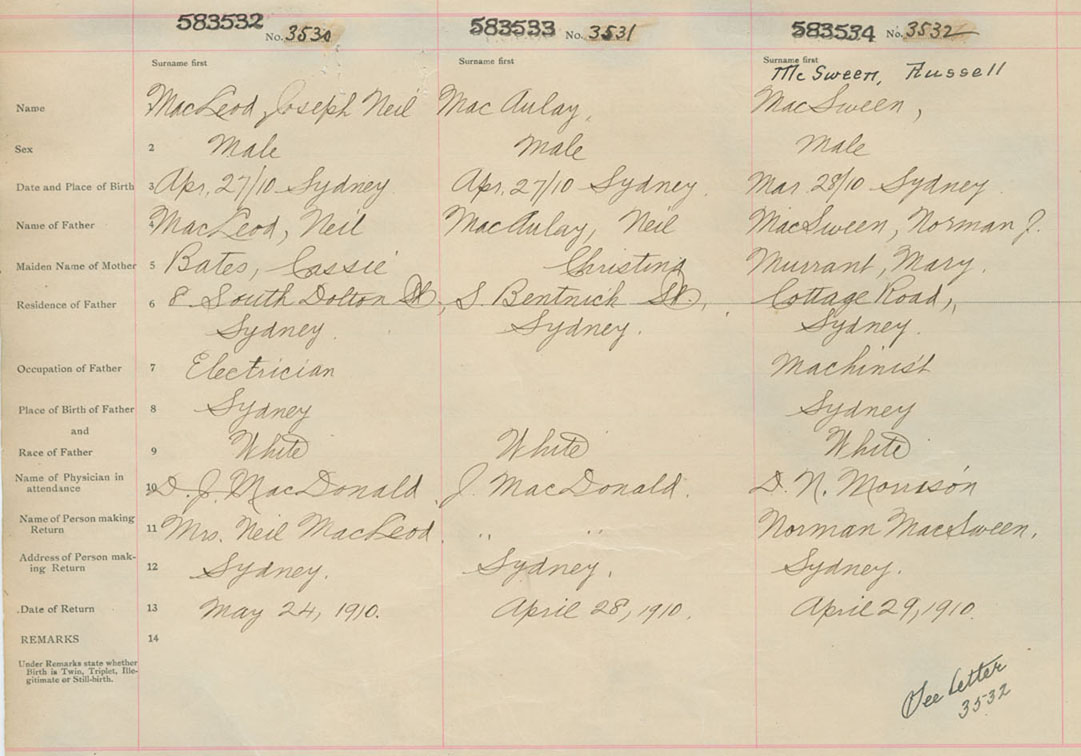 583532 No. 3530 583533 No. 3531 583534 No. 3532
Surname first Surname first Surname first
McSween, Russell
Name MacLeod, Joseph Neil MacAulay, MacSween,
Sex 2 Male Male Male
Date and Place of Birth 3 Apr. 27/10 Sydney Apr. 27/10 Sydney. Mar. 28/10 Sydney
Name of Father 4 MacLeod, Neil MacAulay, Neil MacSween, Norman J.
Maiden Name of Mother 5 Bates, Cassie Christina Murrant, Mary.
Residence of Father 6 8 South Dolton St, S. Bentnick St., Cottage Road,
Sydney. Sydney. Sydney.
Occupation of Father 7 Electrician Machinist
Place of Birth of Father 8 Sydney Sydney
and
Race of Father 9 White White White
Name of Physician in
attendance 10 D. J. MacDonald J. MacDonald. D. N. Morrison
Name of Person making
Return 11 Mrs. Neil MacLeod. " " Norman MacSween.
Address of Person mak-
ing Return 12 Sydney. Sydney. Sydney.
.Date of Return 13 May 24, 1910. April 28, 1910. April 29, 1910.
REMARKS 14
Under Remarks state whether
Birth is Twin, Triplet, Ille-
gitimate or Still-birth.
See Letter
3532